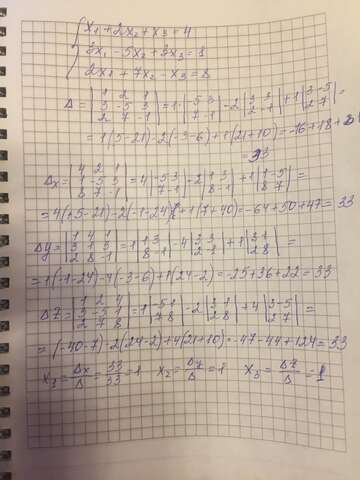 x₁+2x₂+x₃=4
3x₁-5x₂+3x₃=1
2x₁+7x₂-x₃=8
Δ = |1 2 1; 3 -5 3; 2 7 -1| = 1·|-5 3; 7 -1| -2|3 3; 2 -1| +1|3 -5; 2 7| =
= 1(5-21)-2(-3-6)+1(21+10)=-16+18+31
= 33
Δx = |4 2 1; 1 -5 3; 8 7 -1| = 4|-5 3; 7 -1| -2|1 3; 8 -1| +1|1 -5; 8 7| =
=4(+5-21)-2(-1-24)+1(7+40)=-64+50+47=33
Δy = |1 4 1; 3 1 3; 2 8 -1| = 1|1 3; 8 -1| -4|3 3; 2 -1| +1|3 1; 2 8| =
=1(-1-24)-4(-3-6)+1(24-2)=-25+36+22=33
ΔZ = |1 2 4; 3 -5 1; 2 7 8| = 1|-5 1; 7 8| -2|3 1; 2 8| +4|3 -5; 2 7| =
=(-40-7)-2(24-2)+4(21+10)=-47-44+124=33
X₃ = Δx/Δ = 33/33 = 1 X₂ = Δy/Δ = 1 X₃ = ΔZ/Δ = 1